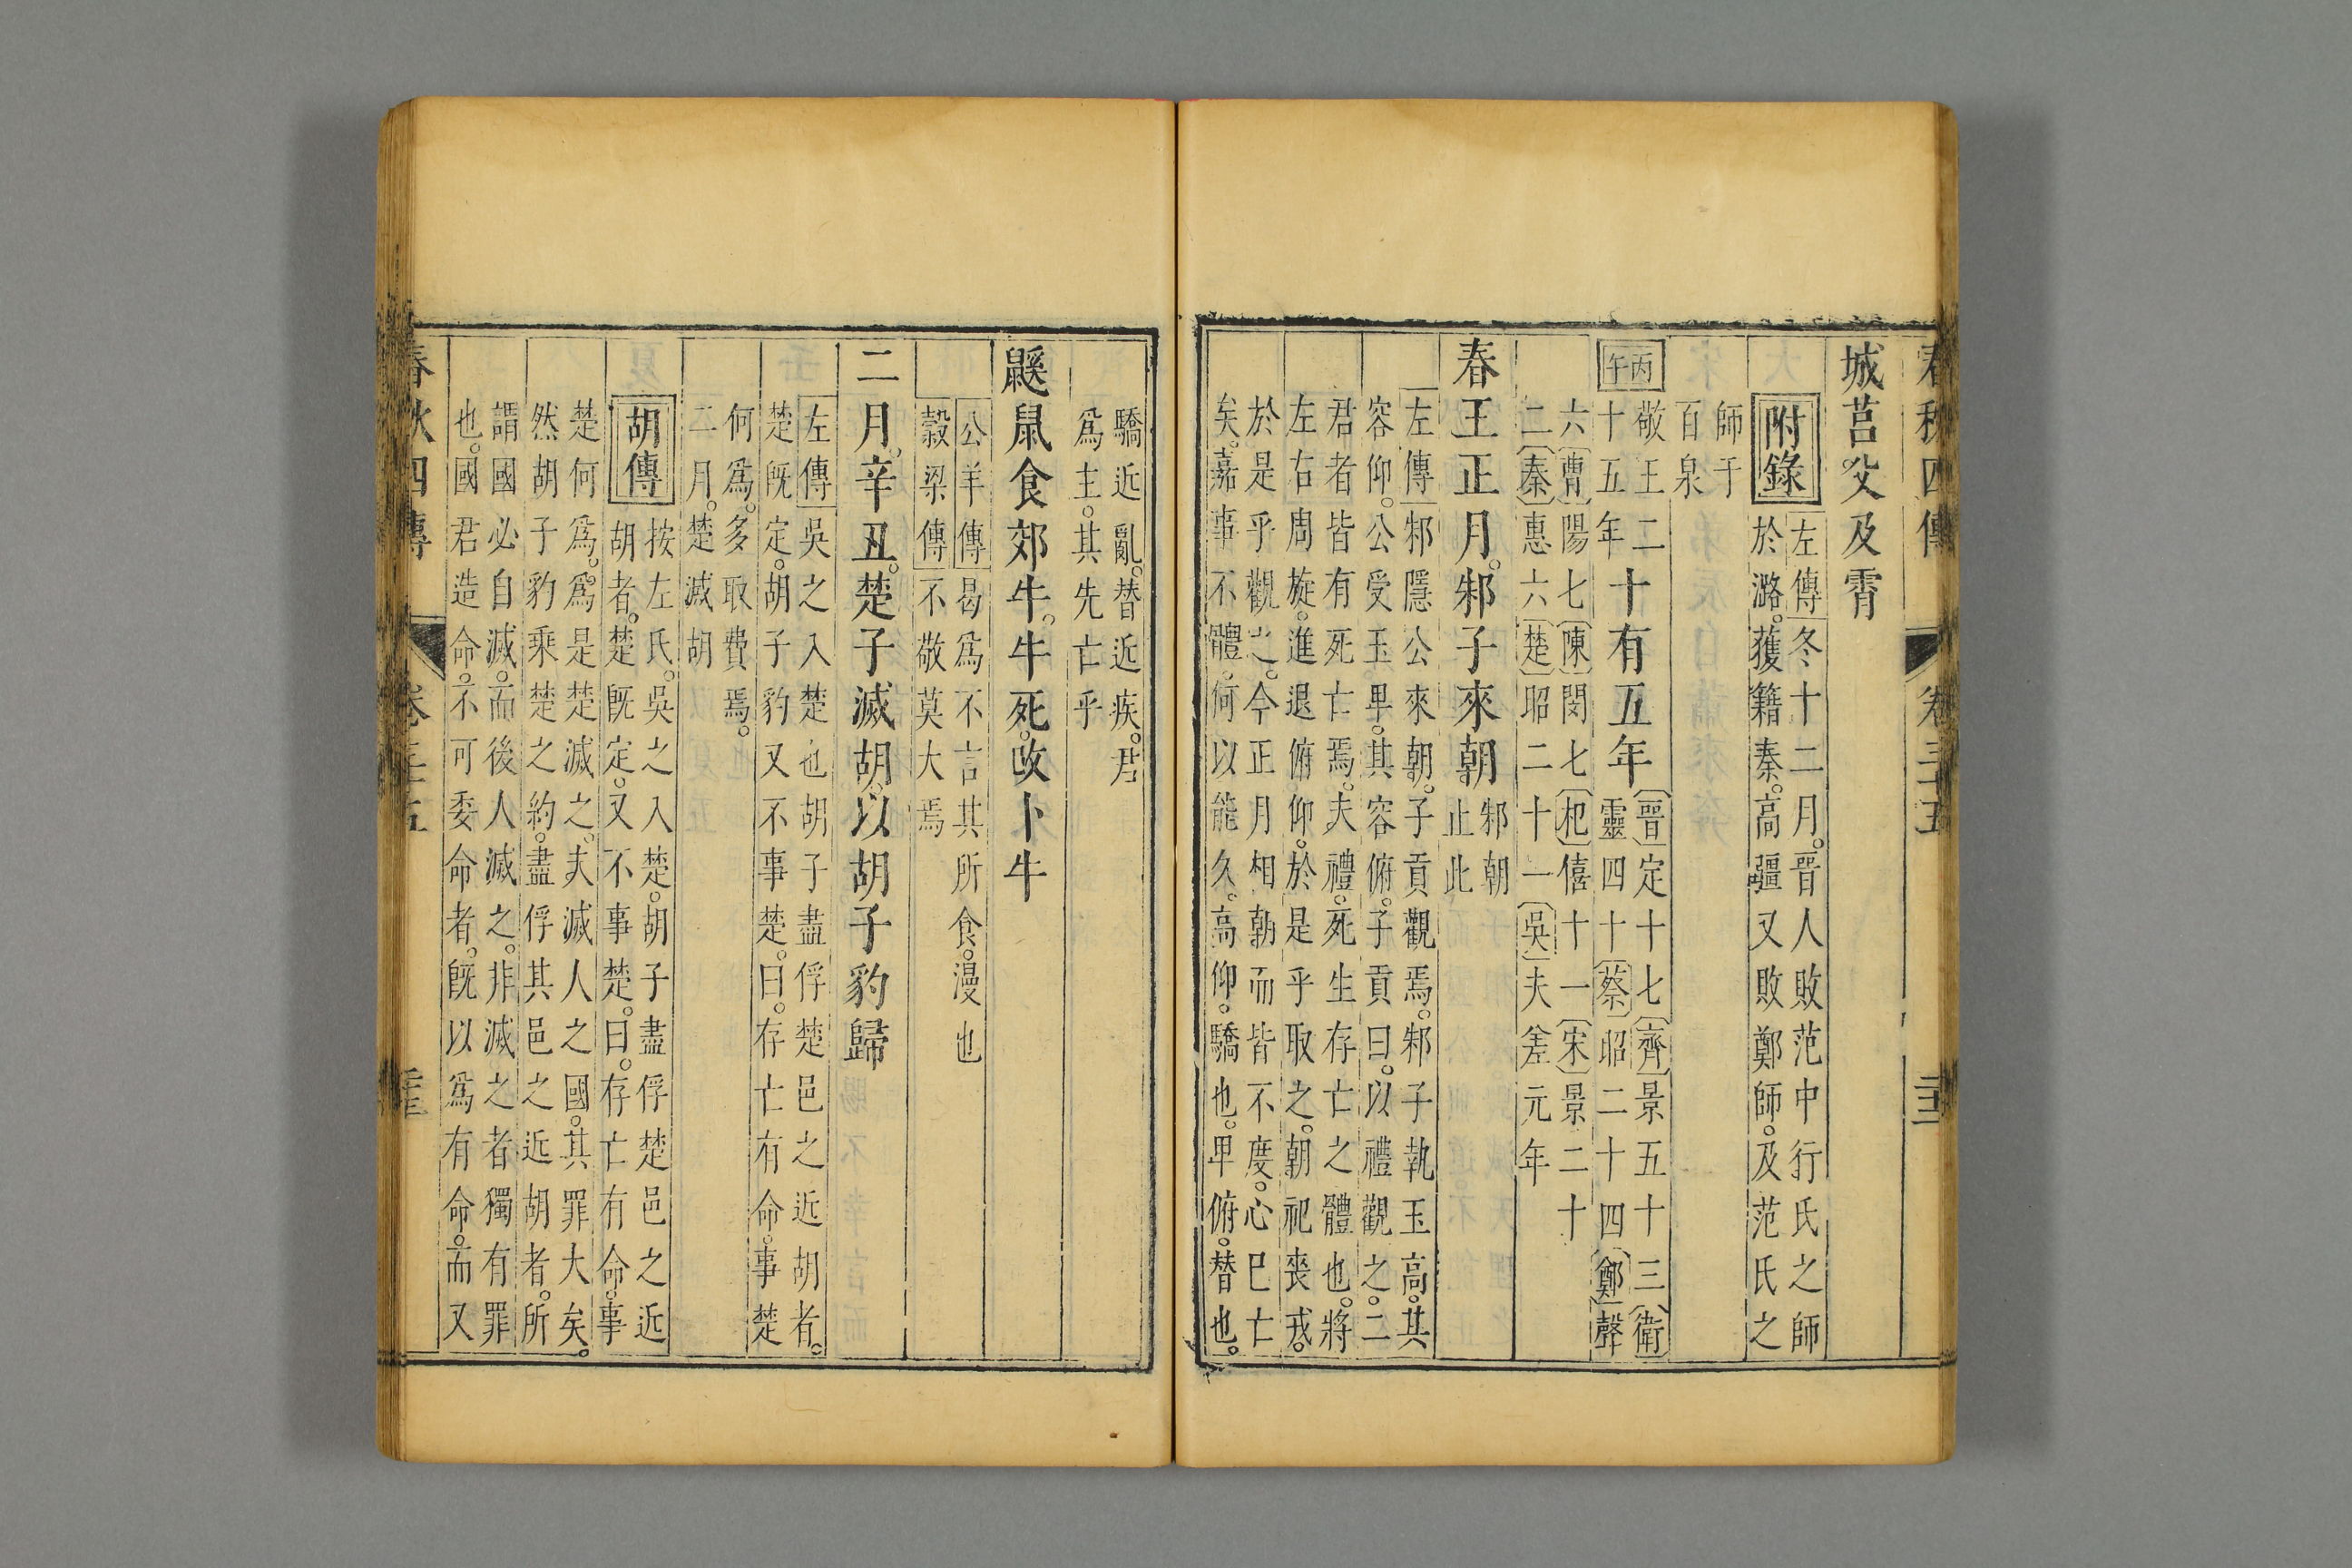 春秋四傳 卷三十五
城莒父及霄
附錄
左傳冬十二月。晉人敗范中行氏之師
於潞。獲籍秦。高彊又敗鄭師。及范氏之
師于
百泉
丙午
敬王二
十五年
十有五年
晉定十七齊景五十三衛
靈四十蔡昭二十四鄭聲
六曹陽七陳閔七杞僖十一宋景二十
二秦惠六楚昭二十一吳夫差元年
春王正月。邾子來朝
邾朝
止此
左傳邾隱公來朝。子貢觀焉。邾子執玉高。其
容仰。公受玉。卑。其容俯。子貢曰。以禮觀之。二
君者皆有死亡焉。夫禮。死生存亡之體也。將
左右周旋。進退俯仰。於是乎取之。朝祀喪戎。
於是乎觀之。今正月相朝而皆不度。心已亡
矣。嘉事不體。何以能久。高仰。驕也。卑俯。替也。
驕近亂。替近疾。君
爲主。其先亡乎
鼷鼠食郊牛。牛死。改卜牛
公羊傳曷爲不言其所食。漫也
穀梁傳不敬莫大焉
二月。辛丑。楚子滅胡。以胡子豹歸
左傳吳之入楚也胡子盡俘楚邑之近胡者。
楚旣定。胡子豹又不事楚。曰。存亡有命。事楚
何爲。多取費焉。
二月。楚滅胡
胡傳
按左氏。吳之入楚。胡子盡俘楚邑之近
胡者。楚旣定。又不事楚。曰。存亡有命。事
楚何爲。爲是楚滅之。夫滅人之國。其罪大矣。
然胡子豹乘楚之約。盡俘其邑之近胡者。所
謂國必自滅。而後人滅之。非滅之者獨有罪
也。國君造命。不可委命者。旣以爲有命。而又
春秋四傳 卷三十五